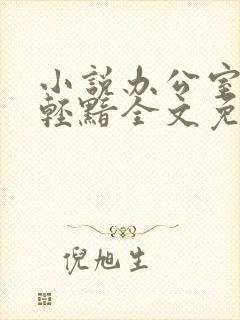 小説办公室
輕黯全文免
倪旭生